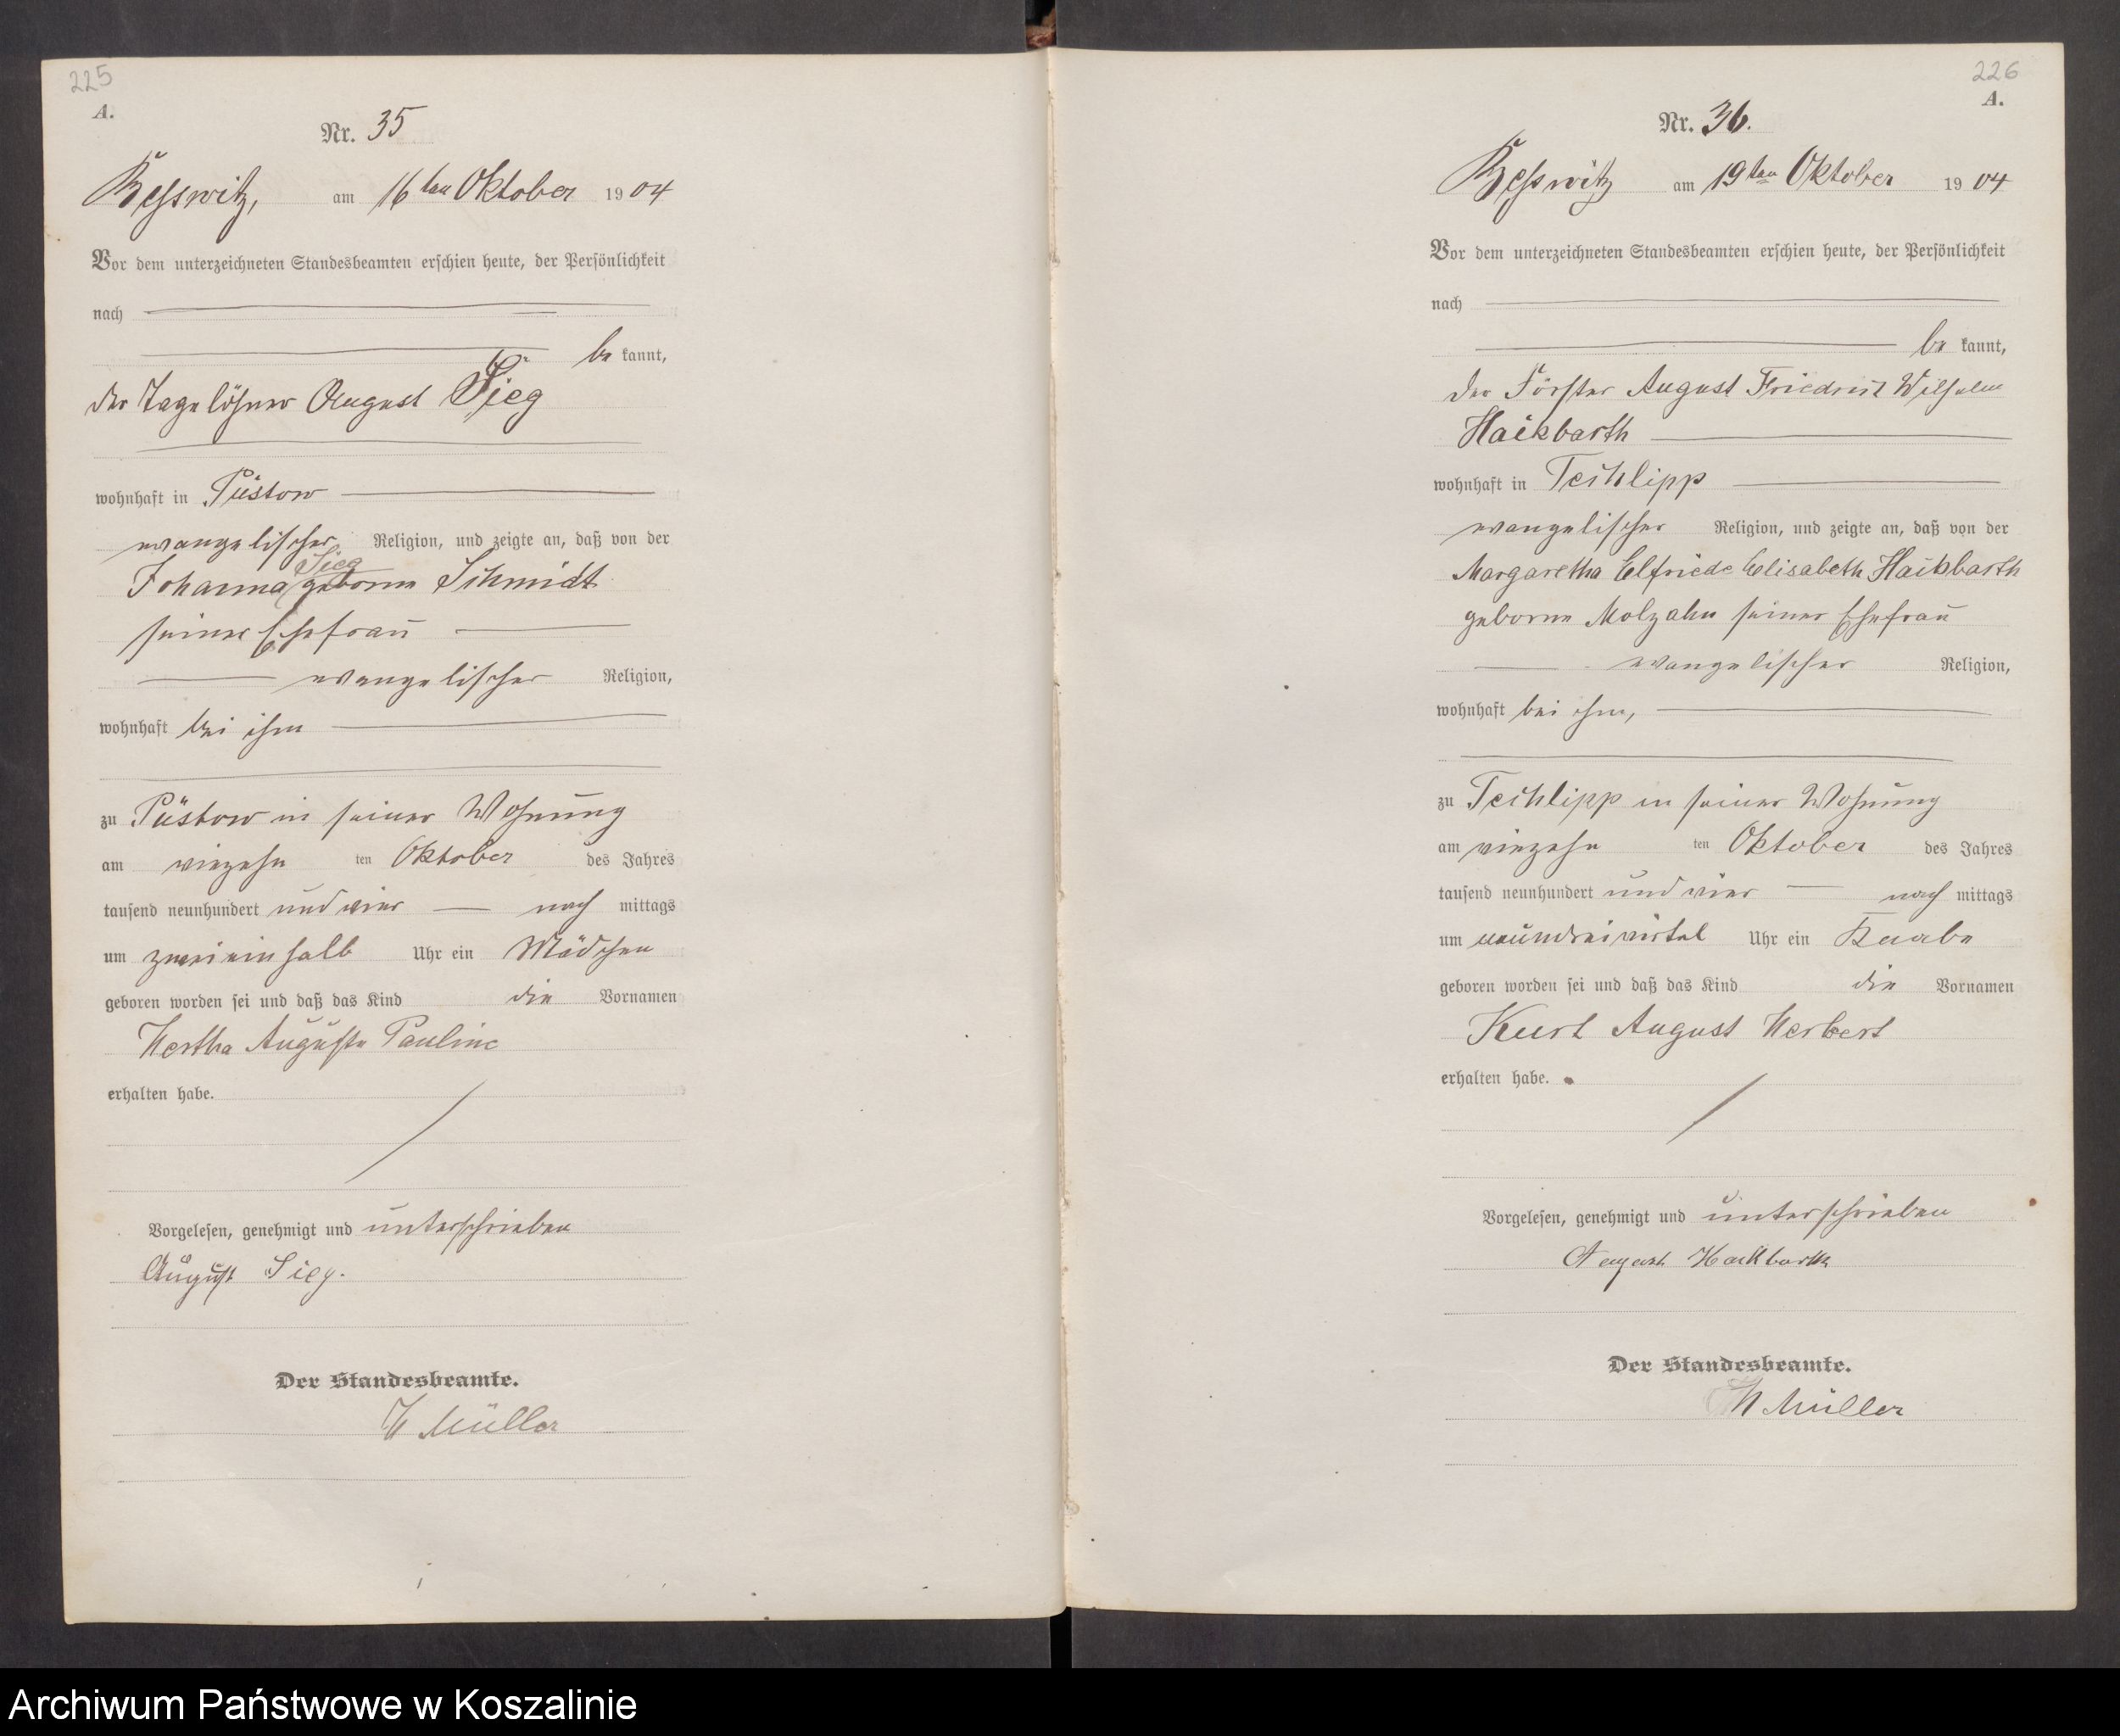 225
A.
Nr. 35
Besswitz, am 16ten Oktober 1904
Vor dem unterzeichneten Standesbeamten erschien heute, der Persönlichkeit
nach
be kannt,
der Tagelöhner August Sieg
wohnhaft in Püstow
evangelischer Religion, und zeigte an, daß von der
Sieg
Johanna geborne Schmidt
seiner Ehefrau
evangelischer Religion,
wohnhaft bei ihm
zu Püstow in seiner Wohnung
am vierzehn ten Oktober des Jahres
tausend neunhundert und vier nach mittags
um zweieinhalb Uhr ein Mädchen
geboren worden sei und daß das Kind die Vornamen
Hertha Auguste Pauline
erhalten habe.
Vorgelesen, genehmigt und unterschrieben
August Sieg.
Der Standesbeamte.
Müller
226
A.
Nr. 36.
Besswitz am 19ten Oktober 1904
Vor dem unterzeichneten Standesbeamten erschien heute, der Persönlichkeit
nach
be kannt,
der Förster August Friedrich Wilhelm
Hackbarth
wohnhaft in Techlipp
evangelischer Religion, und zeigte an, daß von der
Margaretha Elfriede Elisabeth Hackbarth
geborne Molzahn seiner Ehefrau
evangelischer Religion,
wohnhaft bei ihm,
zu Techlipp in seiner Wohnung
am vierzehn ten Oktober des Jahres
tausend neunhundert und vier nach mittags
um neundreiviertel Uhr ein Knabe
geboren worden sei und daß das Kind die Vornamen
Kurt August Herbert
erhalten habe.
Vorgelesen, genehmigt und unterschrieben
August Hackbarth
Der Standesbeamte.
Müller
Archiwum Państwowe w Koszalinie